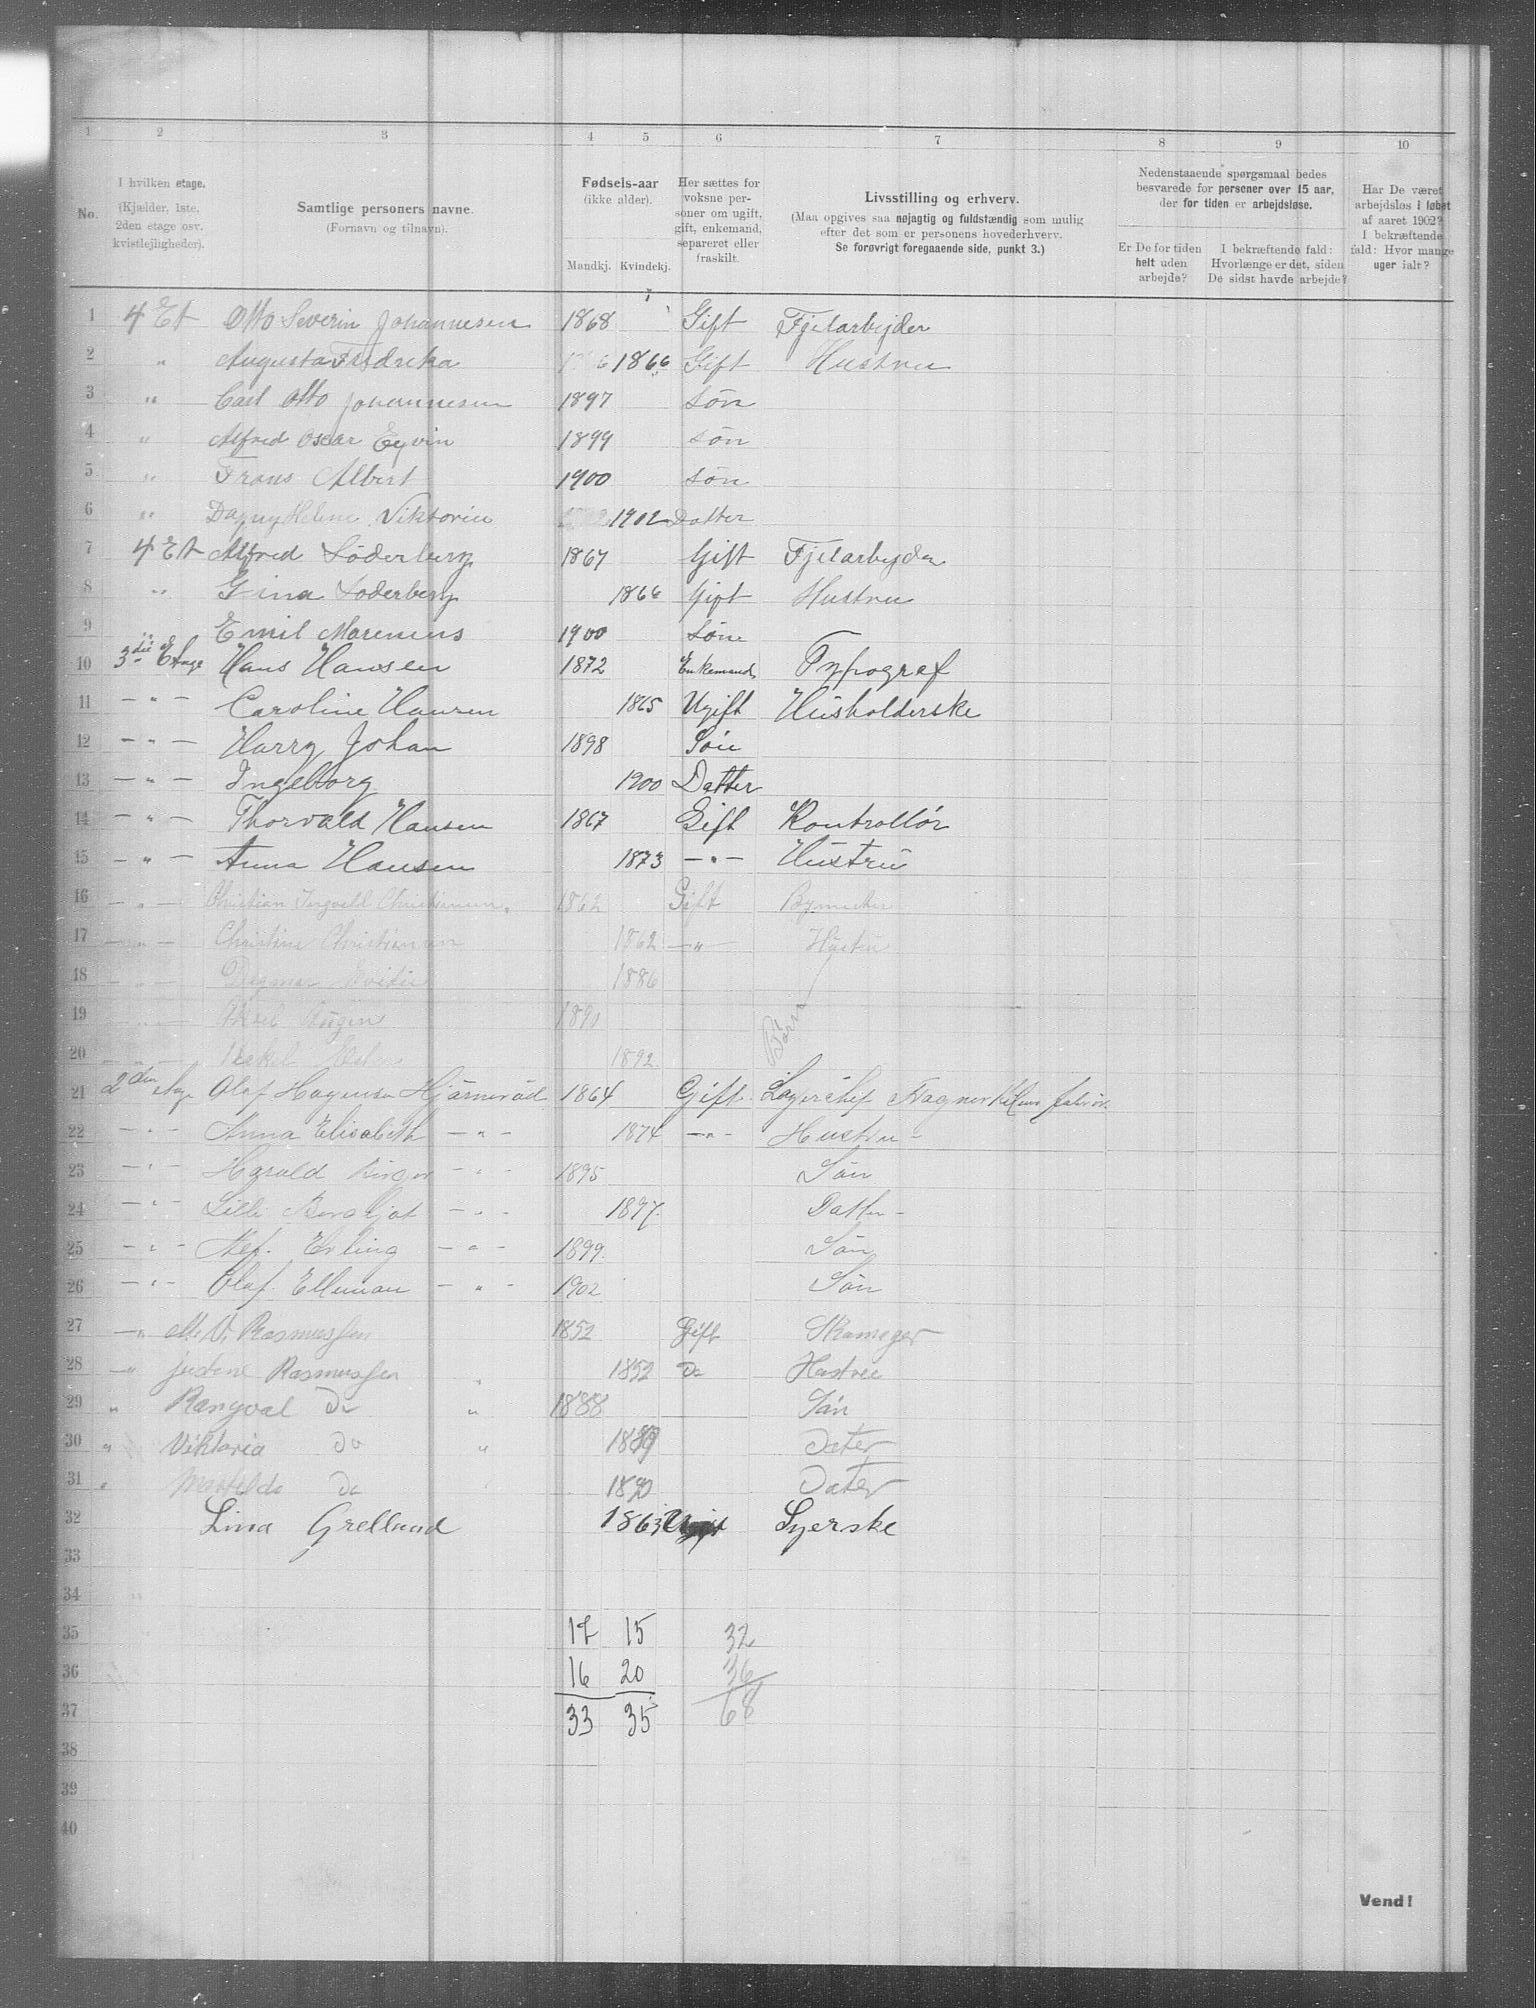 1 2 3 4 5 6 7 8 9 10
No.
I hvilken etage.
(Kjælder, 1ste,
2den etage osv.
kvistlejligheder).
Samtlige personers navne.
(Fornavn og tilnavn).
Fødsels-aar
(ikke alder).
Mandkj. Kvindekj.
Her sættes for
voksne per-
soner om ugift,
gift, enkemand,
separeret eller
fraskilt.
Livsstilling og erhverv.
(Maa opgives saa nøjagtig og fuldstændig som mulig
efter det som er personens hovederhverv.
Se forøvrigt foregaaende side, punkt 3.)
Nedenstaaende spørgsmaal bedes
besvarede for personer over 15 aar,
der for tiden er arbejdsløse.
Er De for tiden
helt uden
arbejde?
I bekræftende fald:
Hvorlænge er det, siden
De sidst havde arbejde?
Har De været
arbejdsløs i løbet
af aaret 1902?
I bekræftende
fald: Hvor mange
uger ialt?
1 4 Et Otto Severin Johannesen 1868 Gift Fjelarbejder
2 " Augusta Fredreka 1866 Gift Hustru
3 " Carl Otto Johannesen 1897 Søn
4 " Alfred Oscar Eyvin 1899 Søn
5 " Frans Albert 1900 Søn
6 " Dagny Helene Viktoria 1902 Datter
7 4 Et Alfred Søderberg 1867 Gift Fjelarbejder
8 " Gina Soderberg 1866 Gift Hustru
9 " Emil Marenius 1900 Søn
10 3die Etage Hans Hansen 1872 Enkemand Typograf
11 — " — Caroline Hansen 1865 Ugift Husholderske
12 — " — Harry Johan 1898 Søn
13 — " — Ingeborg 1900 Datter
14 — " — Thorvald Hansen 1867 Gift Kontrollør
15 — " — Anna Hansen 1873 — " — Hustru
16 — " — Christian Ingvald Christiansen 1862 Gift
17 — " — Christine Christiansen 1862 — " — Hustru
18 — " — Dagmar 1886
19 — " — 1890 Børn
20 — " — 1892
21 2den Etage Olaf Hagensen Hjørnerød 1864 Gift Lagerchef
22 — " — Anna Elisabeth — " — 1874 — " — Hustru
23 — " — Harald Birger — " — 1895 Søn
24 — " — Lilli Bergljot — " — 1897 Datter
25 — " — Alf. Erling — " — 1899 Søn
26 — " — Olaf Elleman — " — 1902 Søn
27 — " V. Rasmussen 1852 Gift Skomager
28 — " Rasmussen " 1852 Do Hustru
29 " Rangval Do " 1888 Søn
30 " Viktoria Do " 1889 Dater
31 " Do " 1890 Dater
32 Lina Grellund 1863 Ugift Syerske
33
34
35 17 15 32
36 16 20 36
37 33 35 68
38
39
40
Vend!